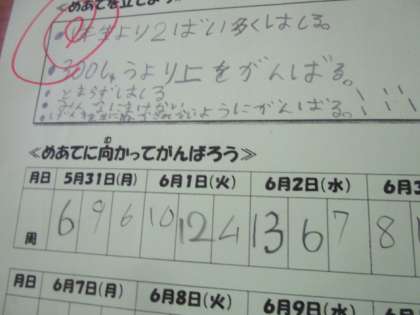 ≪めあてを立てよう
より2ばい多くはしる。
300しゅうより上をがんばる。
とまらずはしる
ようにがんばる。
≪めあてに向かってがんばろう≫
月日 5月31日(月) 6月1日(火) 6月2日(水) 6月3
周 6 9 6 10 12 4 13 6 7 8
月日 6月7日(月) 6月8日(火) 6月9日(水)